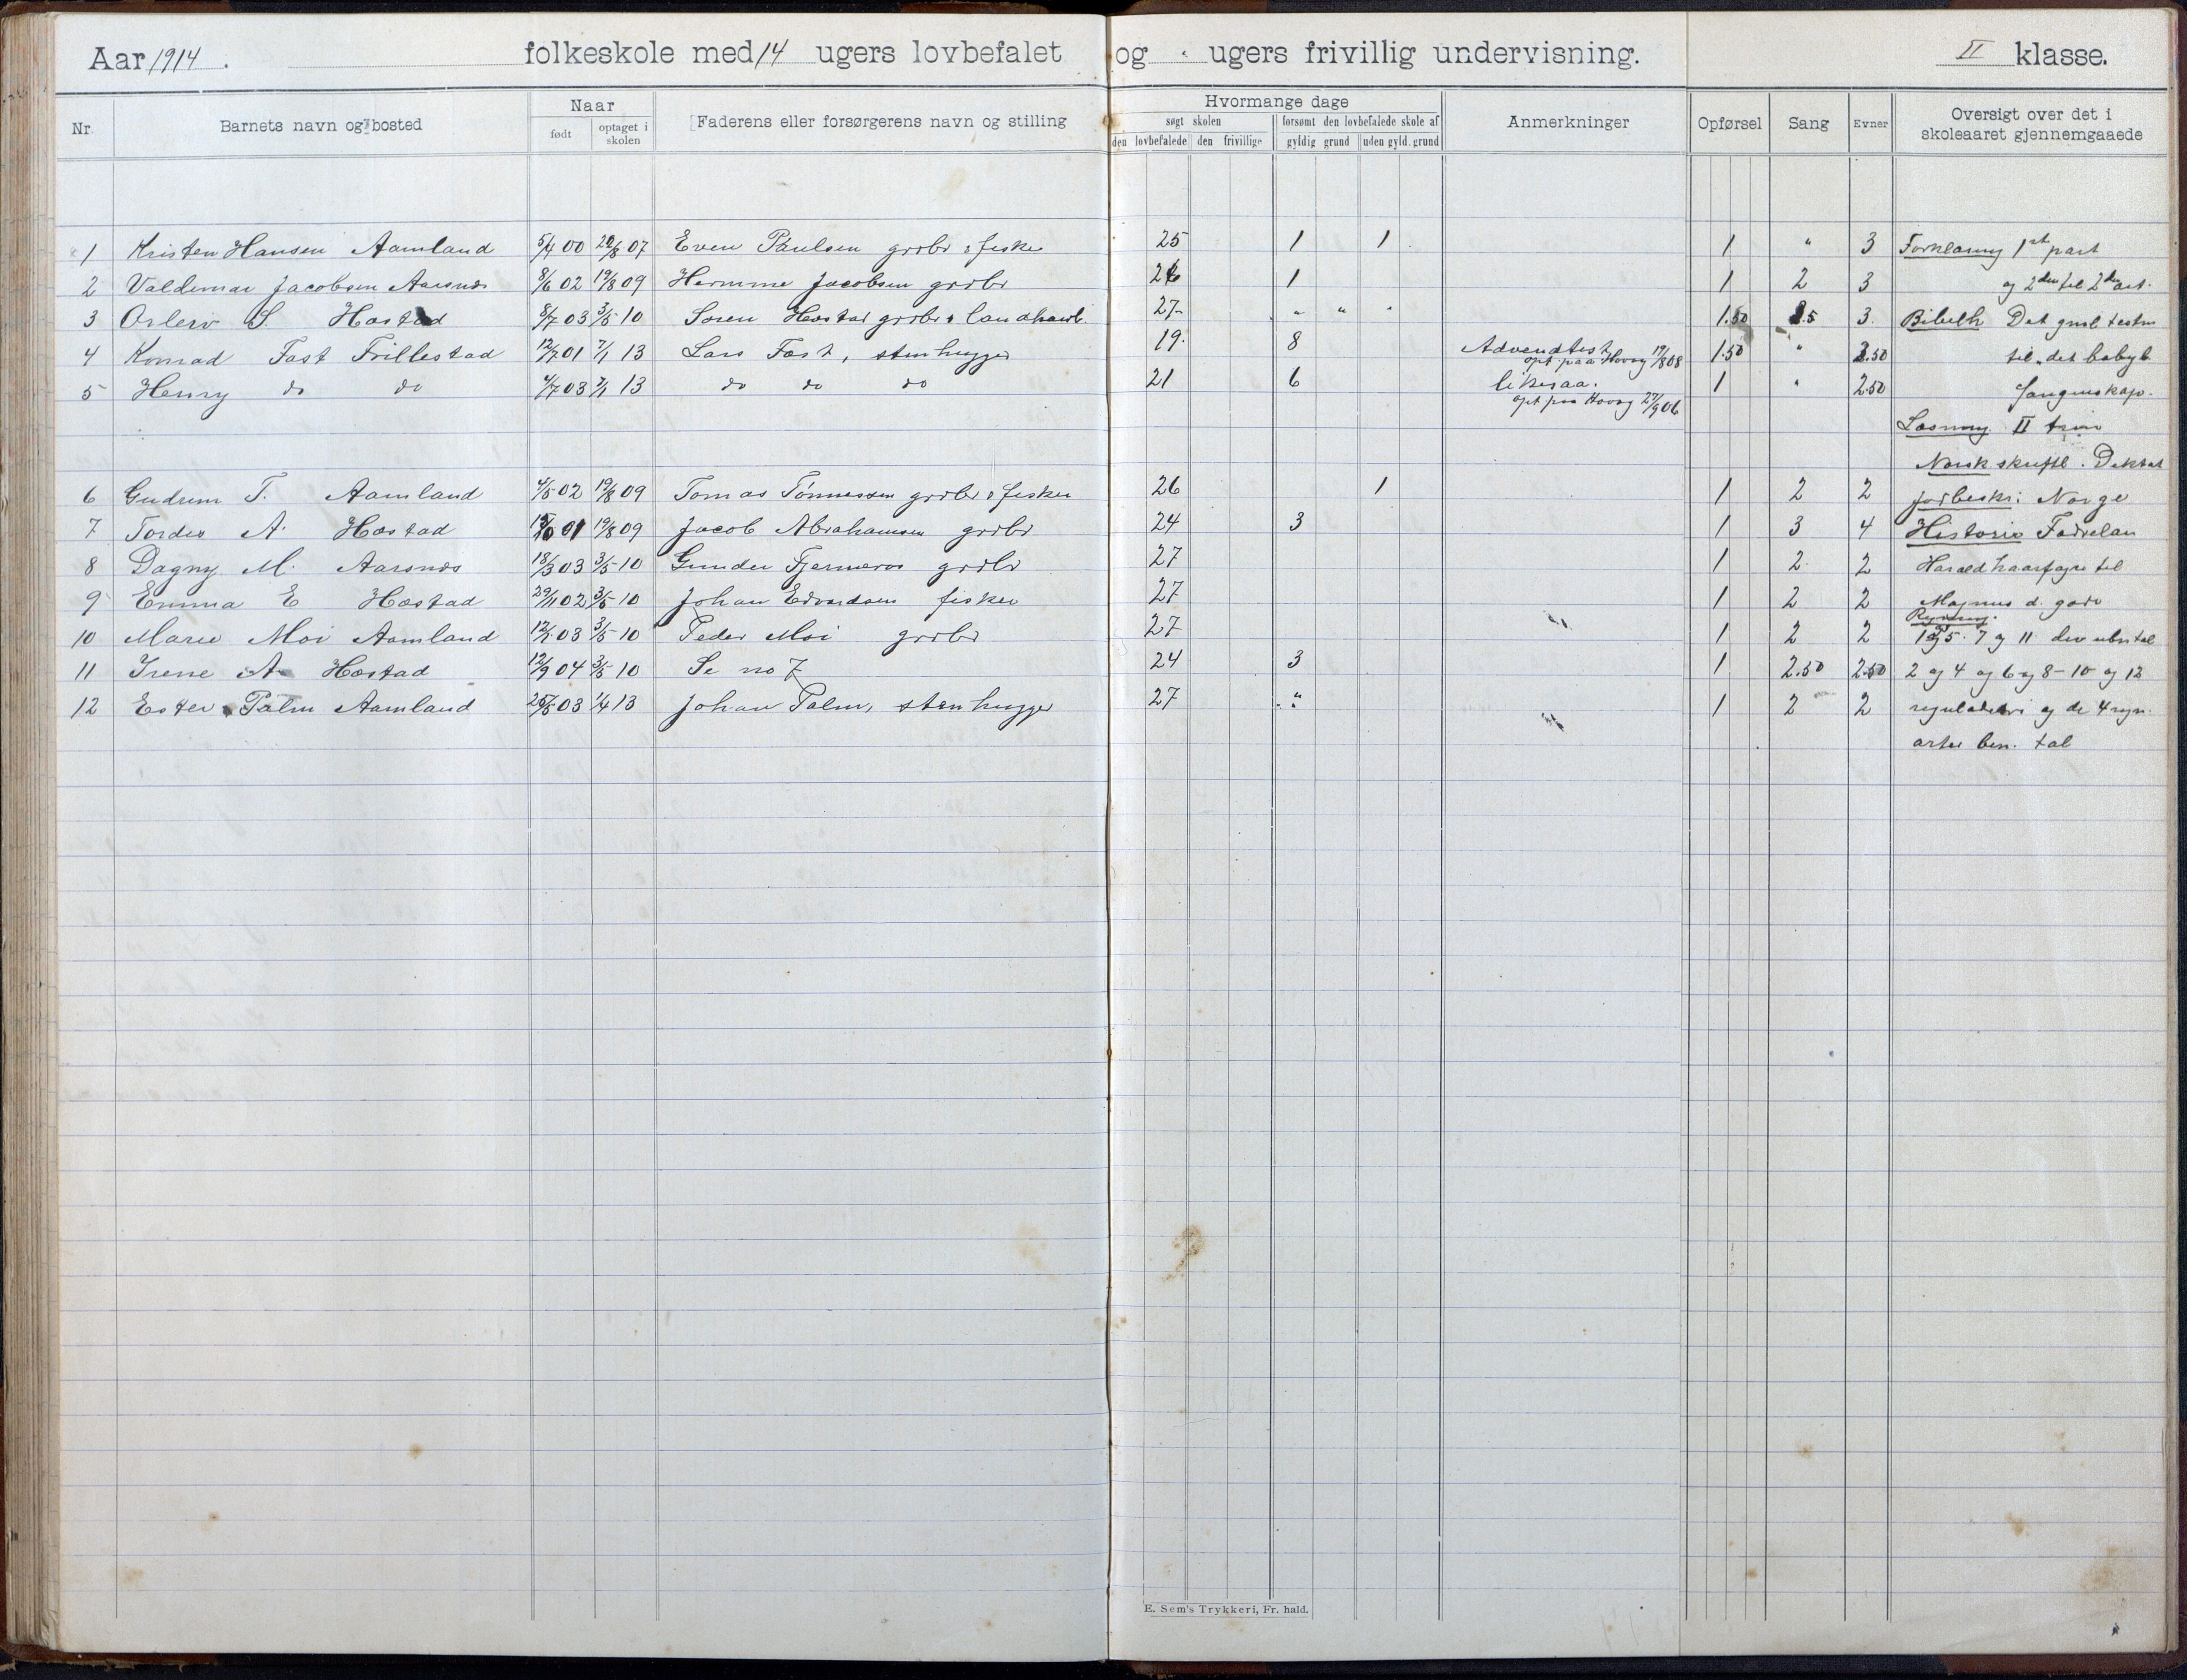 Aar 1914. folkeskole med 14 ugers lovbefalet og " ugers frivillig undervisning. II klasse.
Nr. Barnets navn og bosted Naar født optaget i skolen Faderens eller forsørgerens navn og stilling Hvormange dage søgt skolen den lovbefalede den frivillige forsømt den lovbefalede skole af gyldig grund uden gyld. grund Anmerkninger Opførsel Sang Evner Oversigt over det i skoleaaret gjennemgaaede
1 Kristen Hansen Aamland 5/4 00 07 Even Paulsen grdbr & fisker 25 1 1 1 " 3 Forklaring 1st part
2 Valdemar Jacobsen Aarsnæs 8/6 02 19/8 09 Jacobsen grdbr 26 1 1 2 3 og 2den til 2den art.
3 S. Hæstad 8/7 03 3/5 10 Søren Hæstad grdbr & landhandl. 27 " " " 1.50 2.5 3. Bibelh Det gml testm
4 Konrad Fast Trillestad 12/7 01 7/1 13 Lars Fast, stenhugger 19. 8 Adventist opt. paa Høvåg 19/8 08 1.50 " 2.50 til "det babyl
5 Henry do do 4/7 03 7/1 13 do do do 21 6 likesaa. opt paa Høvåg 27/9 06 1 " 2.50 fangenskap.
Læsning II trin
Norsk skriftl. Diktat
6 Gudrun T. Aamland 4/5 02 19/8 09 Tomas Tønnessen grdbr & fisker 26 1 1 2 2 Jordbeskr: Norge
7 Tordis A. Hæstad 01 19/8 09 Jacob Abrahamsen grdbr 24 3 1 3 4 Historie Fædrelan
8 Dagny M. Aarsnæs 18/3 03 3/5 10 Gunder Fjermeros grdbr 27 1 2 2 Harald haarfagre til
9 Emma E Hæstad 29/11 02 3/5 10 Johan Edvardsen fisker 27 1 2 2 Magnus d. gode
10 Marie Moi Aamland 12/5 03 3/5 10 Peder Moi grdbr 27 1 2 2 Regning. 1 og 5. 7 og 11 den ubn tal
11 Irene A Hæstad 12/9 04 3/5 10 Se no 7 24 3 1 2.50 2.50 2 og 4 og 6 og 8-10 og 12
12 Ester Palm Aamland 25/5 03 1/4 13 Johan Palm, stenhugger 27 " 1 2 2 reguladetri og de 4 regn.
arter ben. tal
E. Sem's Trykkeri, Fr. hald.